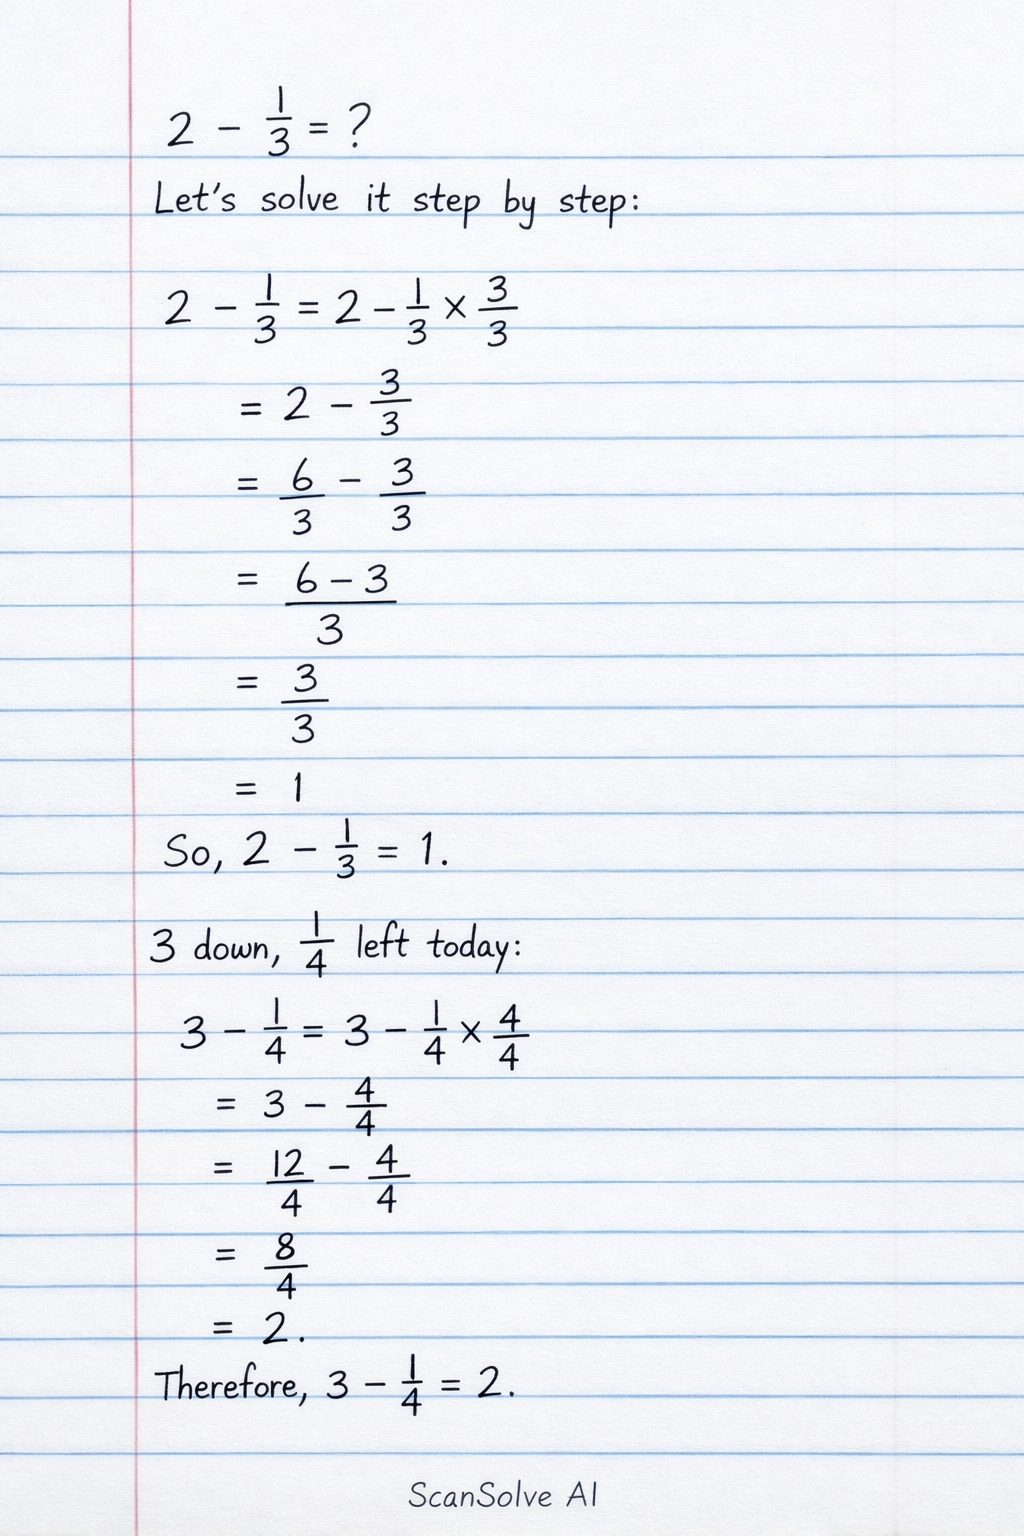 2 - 1/3 = ?
Let's solve it step by step:
2 - 1/3 = 2 - 1/3 × 3/3
= 2 - 3/3
= 6/3 - 3/3
= (6 - 3)/3
= 3/3
= 1
So, 2 - 1/3 = 1.
3 down, 1/4 left today:
3 - 1/4 = 3 - 1/4 × 4/4
= 3 - 4/4
= 12/4 - 4/4
= 8/4
= 2.
Therefore, 3 - 1/4 = 2.
ScanSolve AI